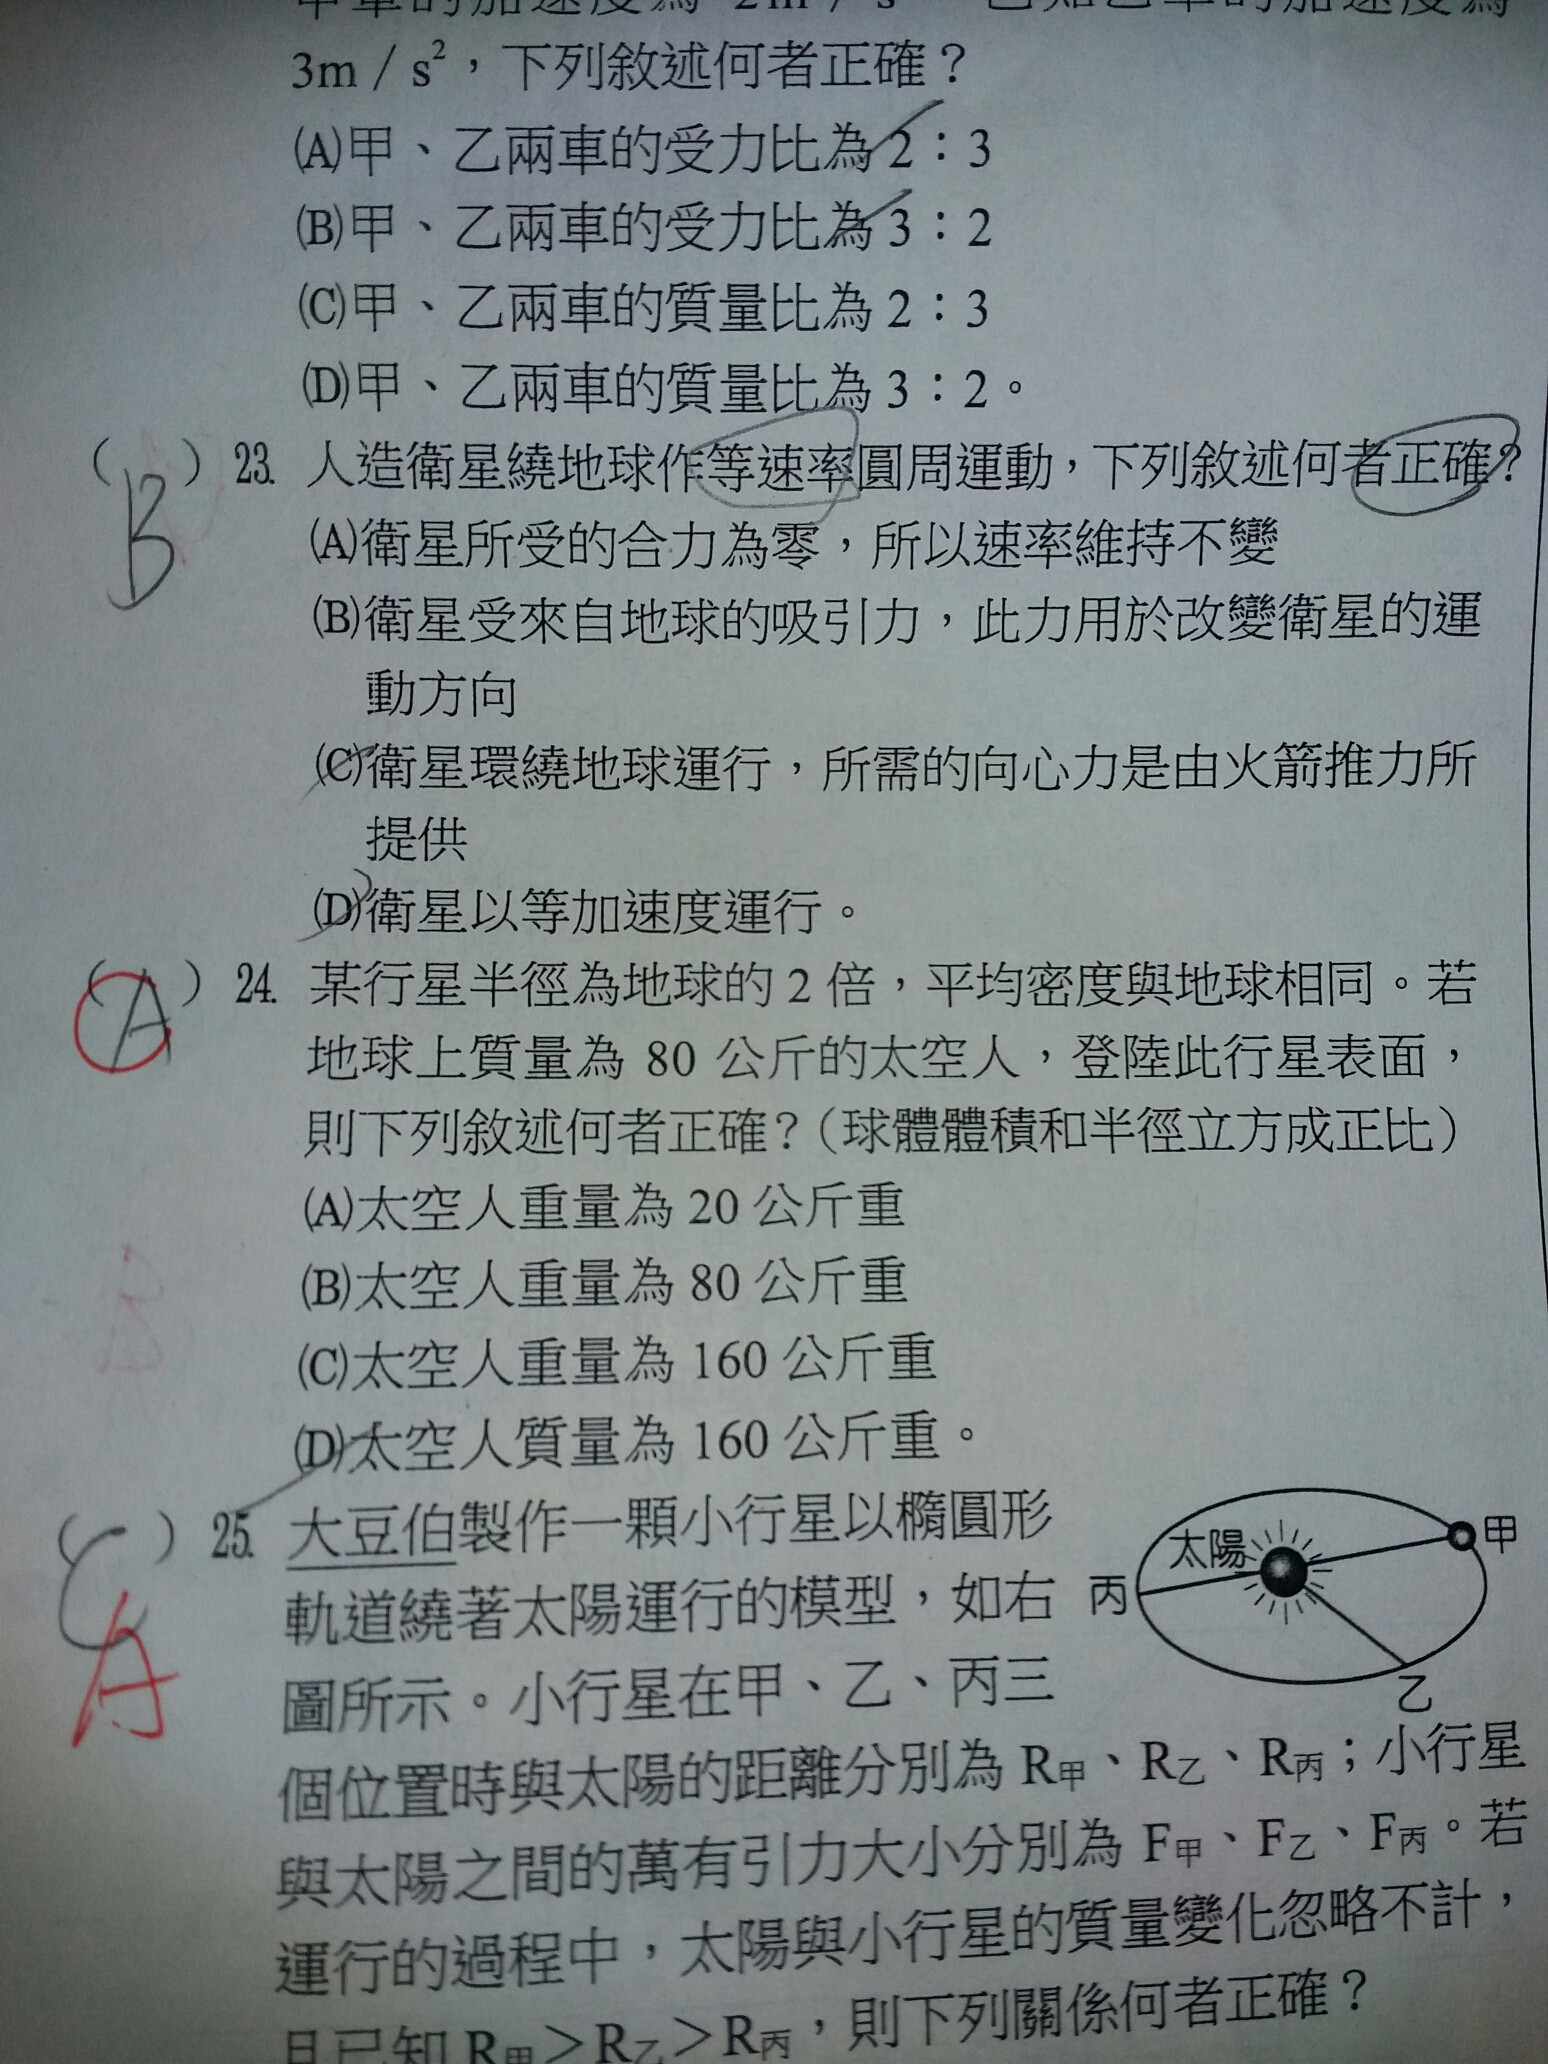 甲車的加速度為 2m / s² 已知乙車的加速度為
3m / s²，下列敘述何者正確？
(A)甲、乙兩車的受力比為 2：3
(B)甲、乙兩車的受力比為 3：2
(C)甲、乙兩車的質量比為 2：3
(D)甲、乙兩車的質量比為 3：2。
( B ) 23. 人造衛星繞地球作等速率圓周運動，下列敘述何者正確？
(A)衛星所受的合力為零，所以速率維持不變
(B)衛星受來自地球的吸引力，此力用於改變衛星的運
動方向
(C)衛星環繞地球運行，所需的向心力是由火箭推力所
提供
(D)衛星以等加速度運行。
( A ) 24. 某行星半徑為地球的 2 倍，平均密度與地球相同。若
地球上質量為 80 公斤的太空人，登陸此行星表面，
則下列敘述何者正確？（球體體積和半徑立方成正比）
(A)太空人重量為 20 公斤重
(B)太空人重量為 80 公斤重
(C)太空人重量為 160 公斤重
B
(D)太空人質量為 160 公斤重。
( C ) 25. 大豆伯製作一顆小行星以橢圓形
A
軌道繞著太陽運行的模型，如右
圖所示。小行星在甲、乙、丙三
太陽
甲
丙
乙
個位置時與太陽的距離分別為 R甲、R乙、R丙；小行星
與太陽之間的萬有引力大小分別為 F甲、F乙、F丙。若
運行的過程中，太陽與小行星的質量變化忽略不計，
且已知 R甲＞R乙＞R丙，則下列關係何者正確？